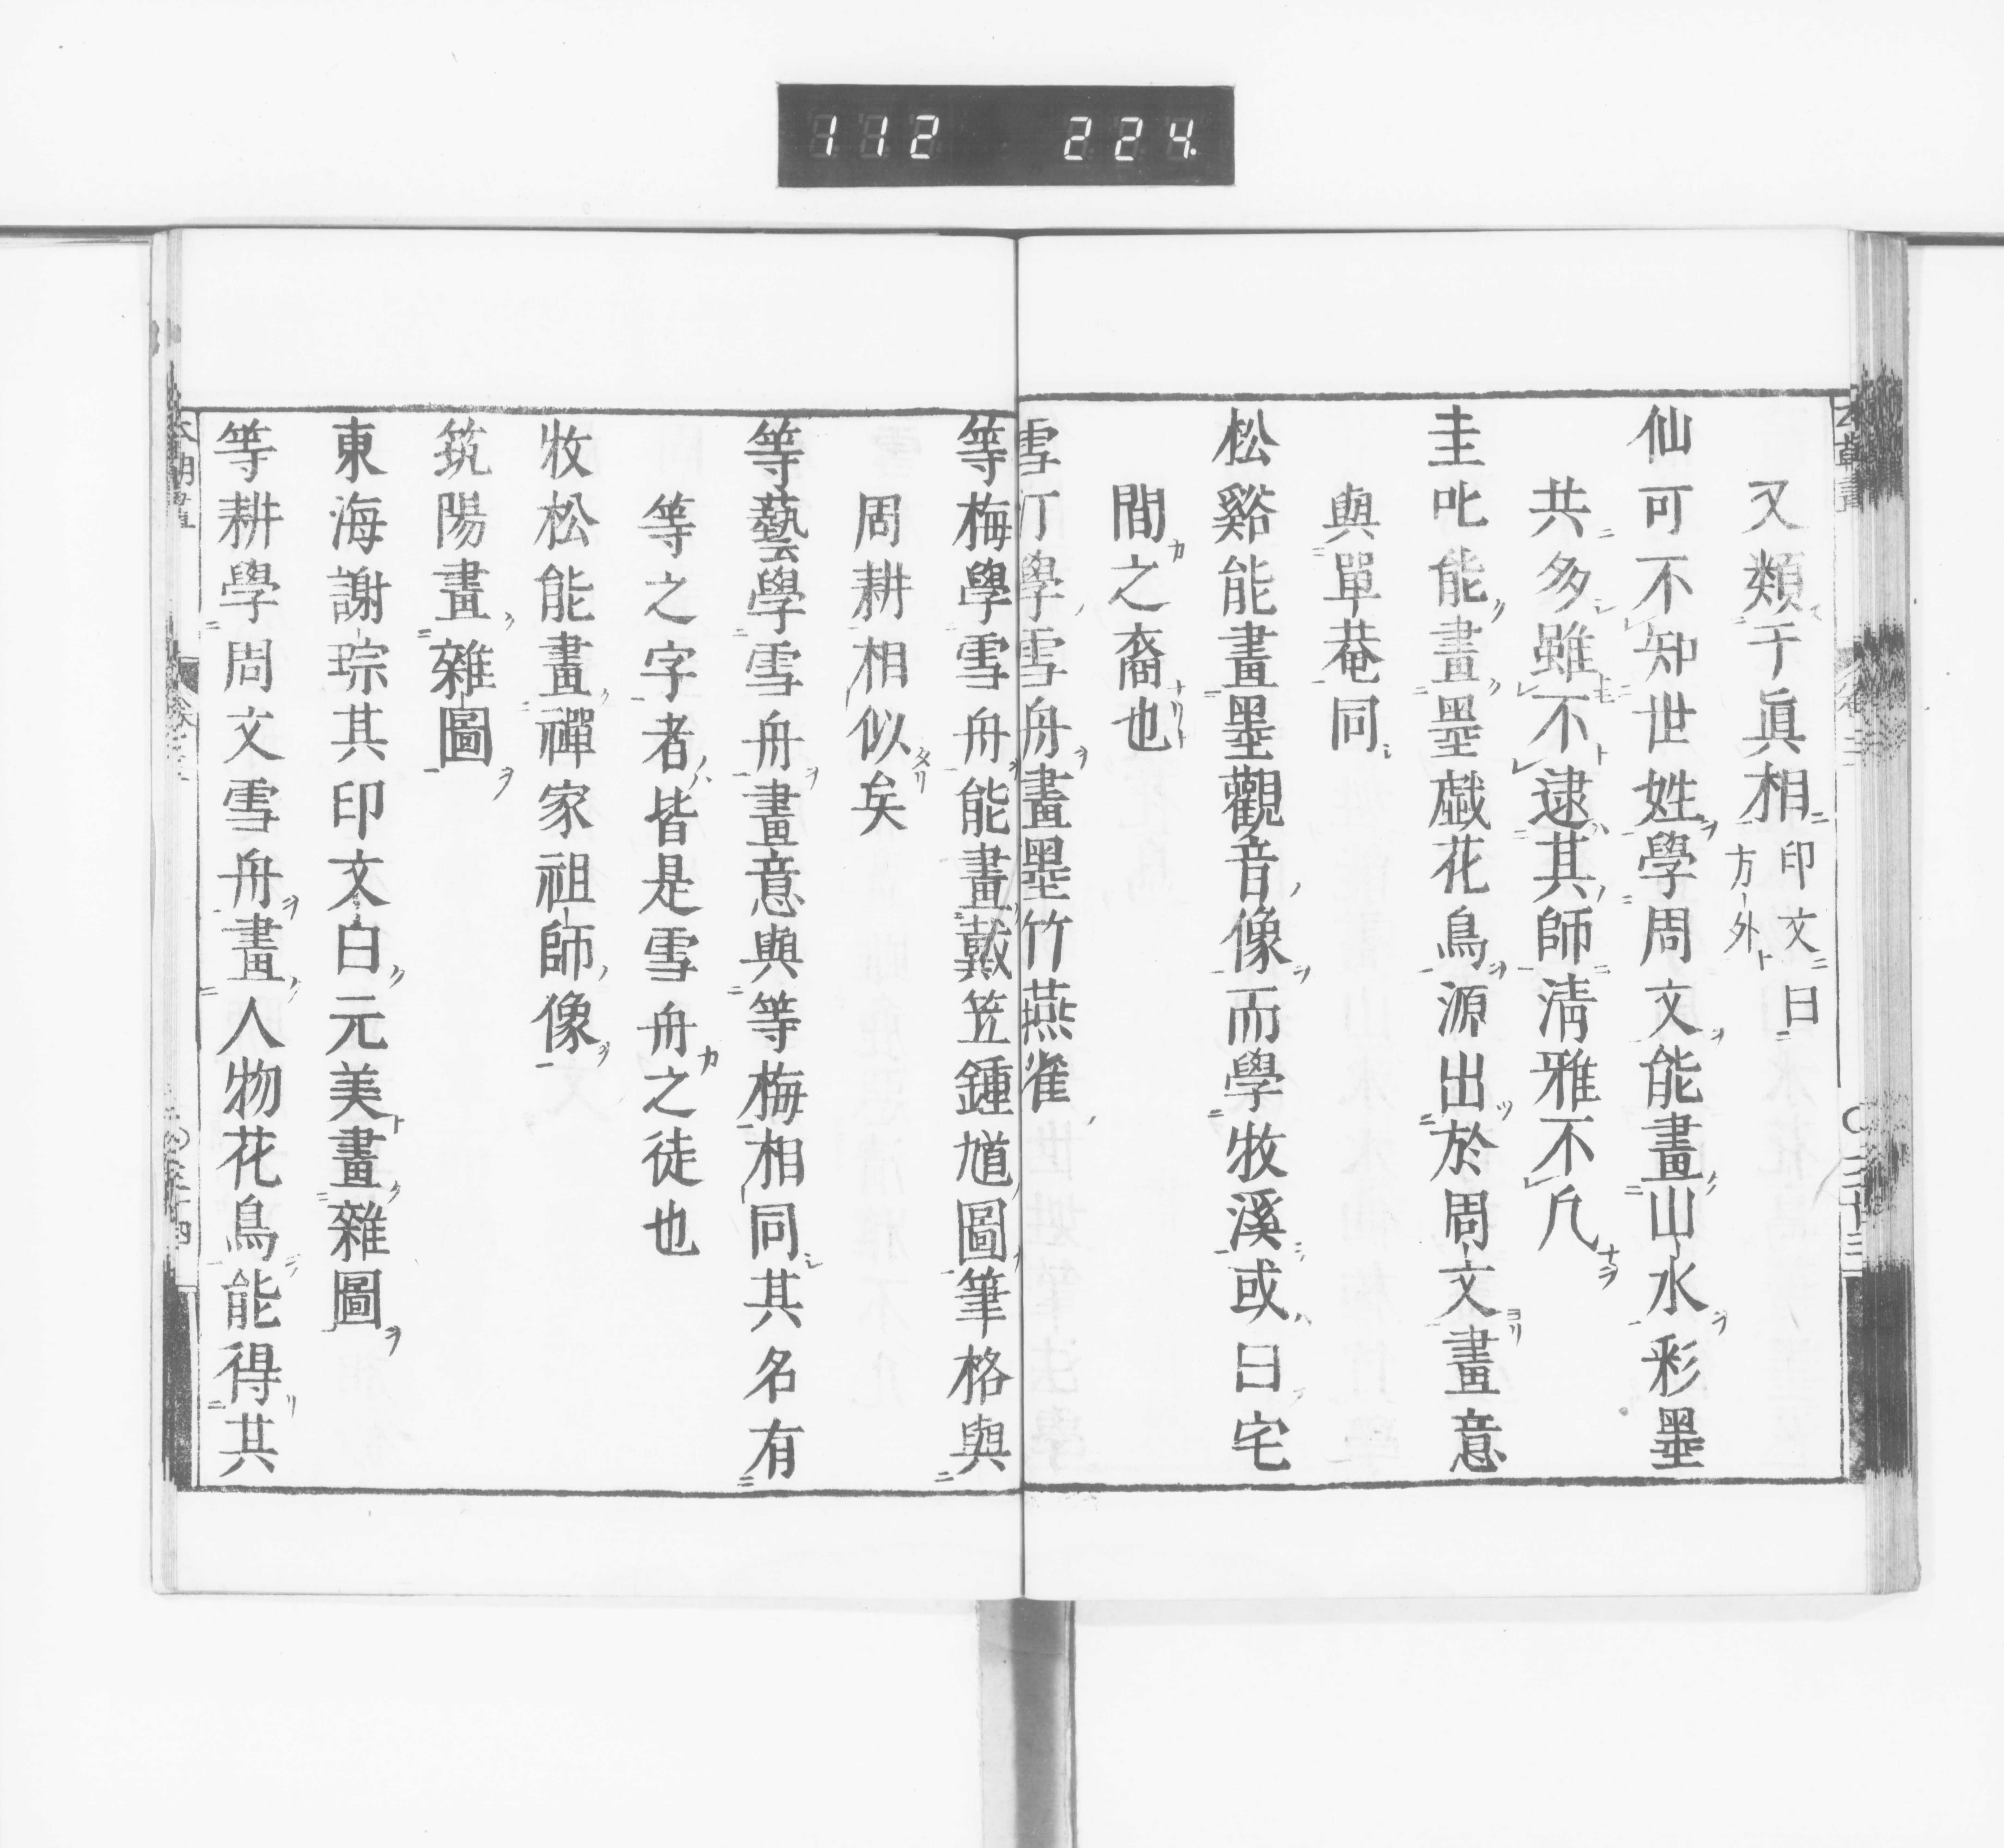 112 224
又類于眞相印文曰方外
仙可不知世姓學周文能畫山水彩墨
共多雖不逮其師淸雅不凢
圭叱能畫墨戯花鳥源出於周文畫意
與單菴同
松谿能畫墨觀音像而學牧溪或曰宅
間之裔也
雪汀學雪舟畫墨竹燕雀
等梅學雪舟能畫戴笠鍾馗圖筆格與
周耕相似矣
等藝學雪舟畫意與等梅相同其名有
等之字者皆是雪舟之徒也
牧松能畫禪家祖師像
筑陽畫雜圖
東海謝琮其印文白元美畫雜圖
等耕學周文雪舟畫人物花鳥能得其